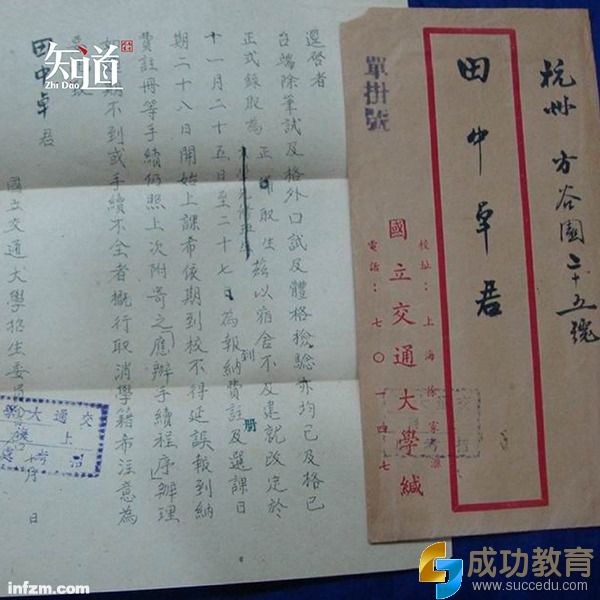 杭州 方谷園二十五號
田中卓君
單掛號
校址：上海徐家滙
國立交通大學緘
電話：七〇一四七
逕啓者
台端除筆試及格外口試及體格檢驗亦均已及格已
正式錄取為正取生茲以宿舍不及建就改定於
十一月二十五日至二十七日為報到納費註冊及選課日
期二十八日開始上課希依期到校不得延誤報到納
費註冊等手續仍照上次附寄之「應辦手續程序」辦理
期不到或手續不全者概行取消學籍希注意為
田中卓君
國立交通大學招生委員
月 日
交通大學
知道
Zhi Dao
infzm.com
成功教育
www.succedu.com